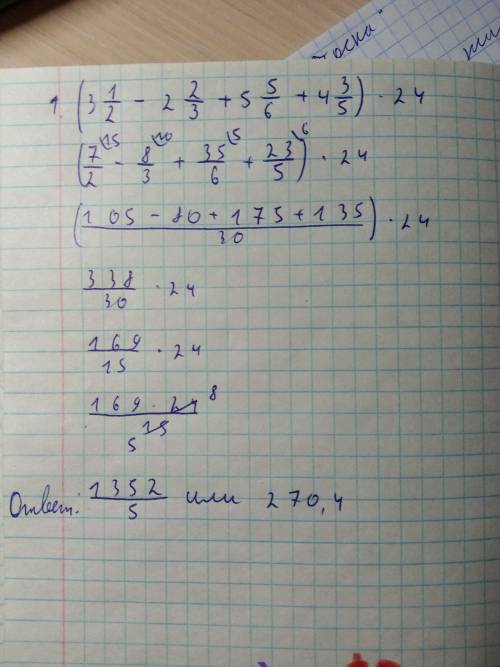 тоска"
1. (3 1/2 - 2 2/3 + 5 5/6 + 4 3/5) · 24
(7/2 \15 - 8/3 \10 + 35/6 \5 + 23/5 \6) · 24
(105 - 80 + 175 + 135 / 30) · 24
338/30 · 24
169/15 · 24
169 · 24 8 / 15 5
Ответ: 1352/5 или 270,4